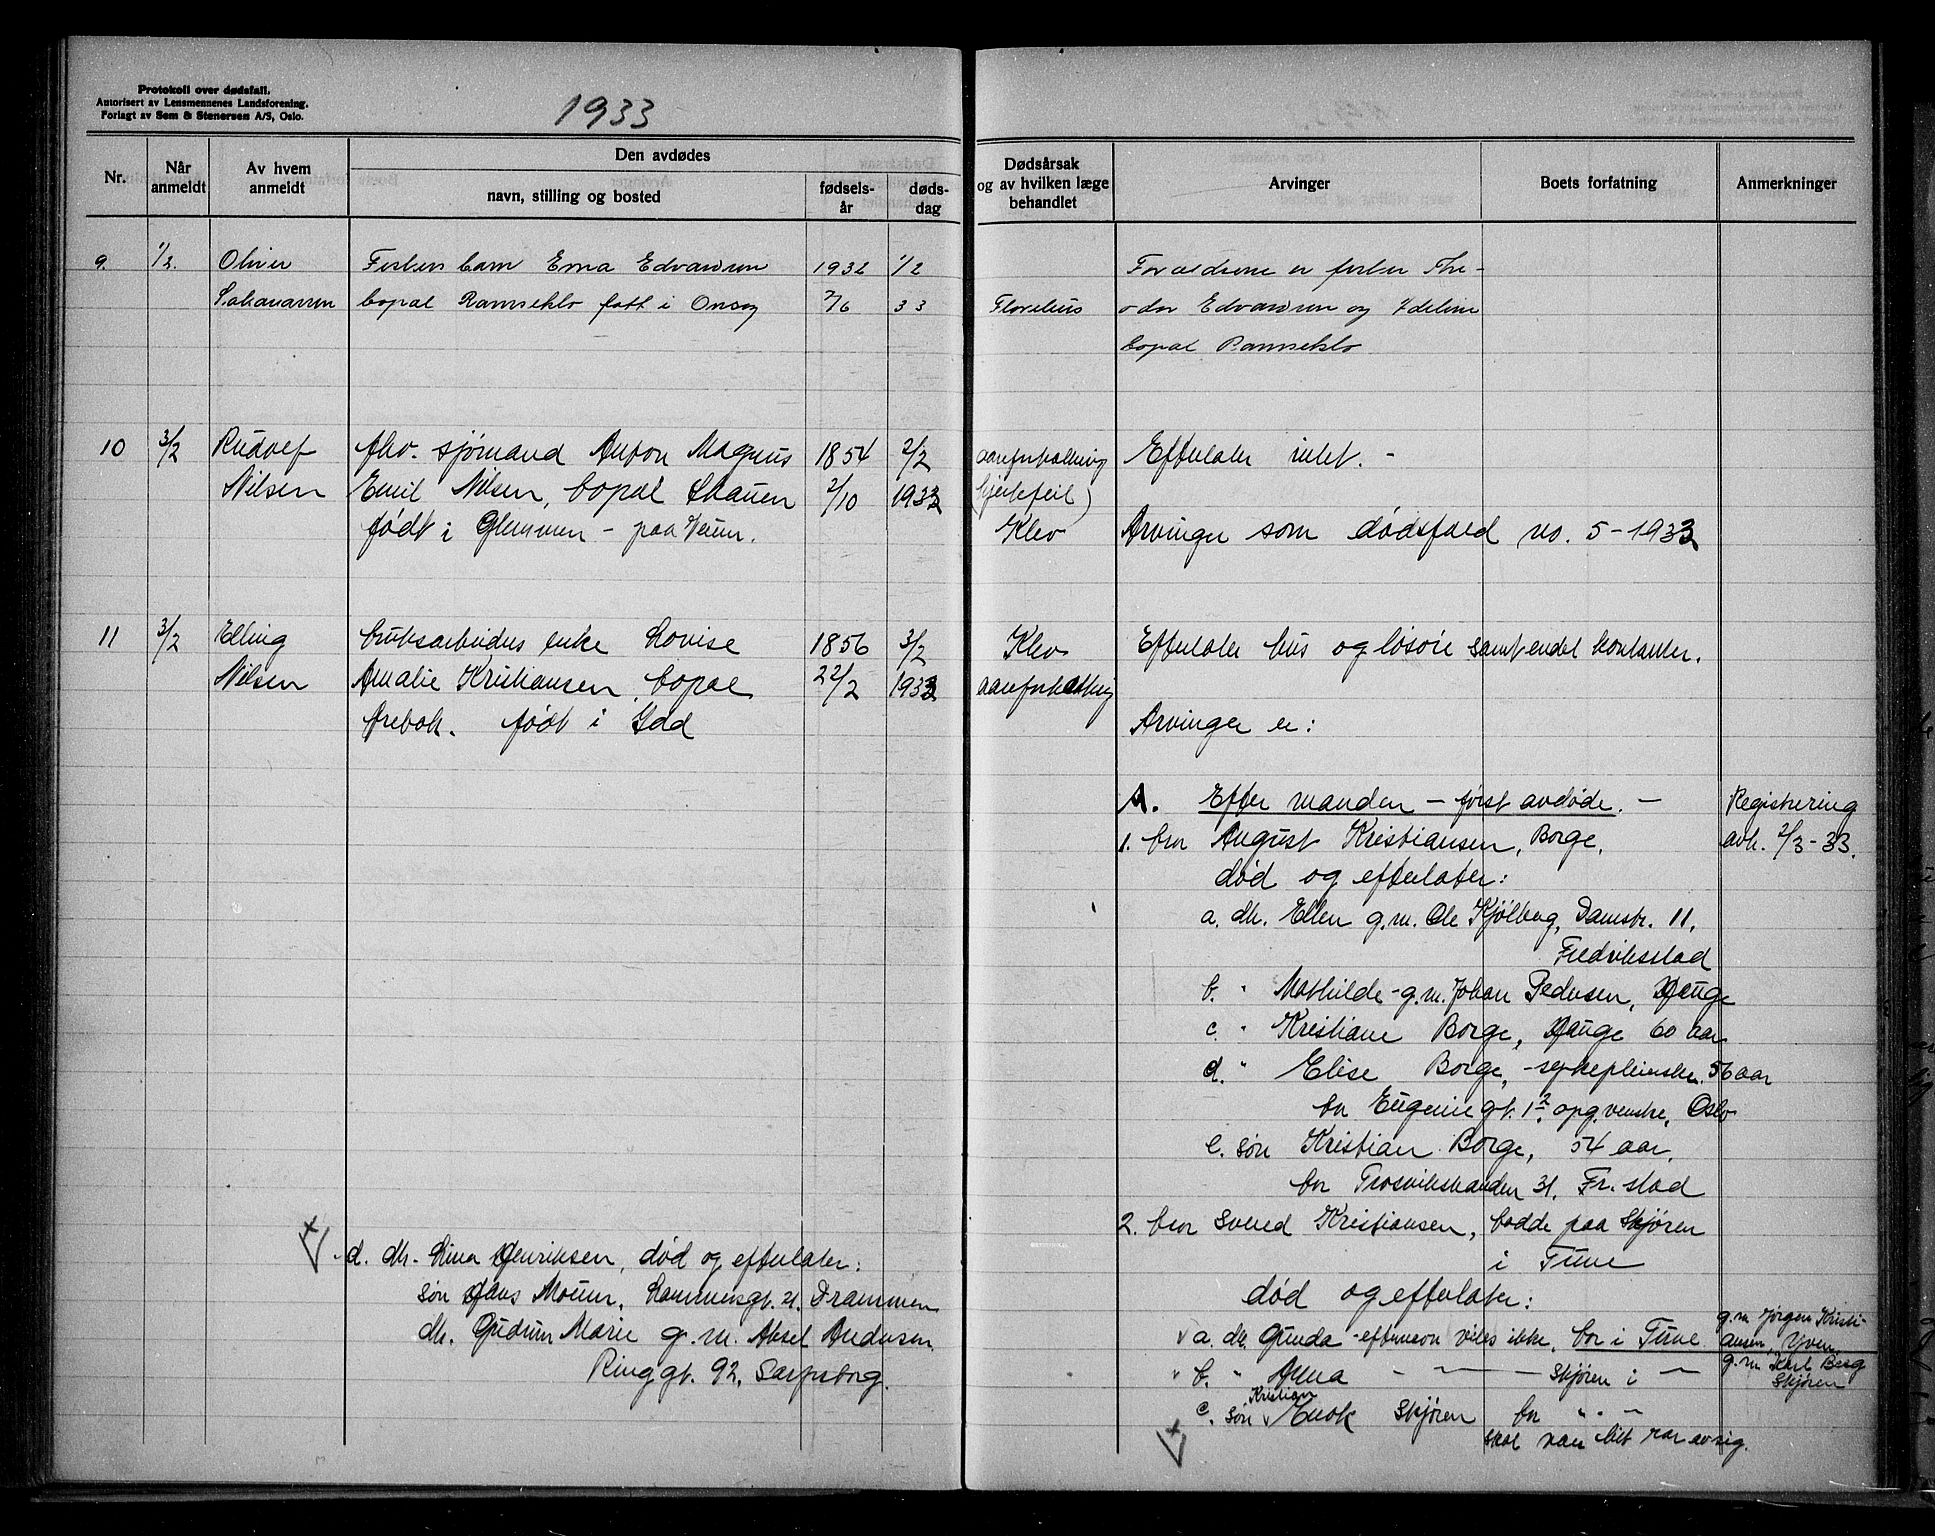 Protokoll over dødsfall.
Autorisert av Lensmennenes Landsforening.
Forlagt av Sem & Stenersen A/S, Oslo.
1933
Nr.
Når anmeldt
Av hvem anmeldt
Den avdødes
navn, stilling og bosted
fødsels-år
døds-dag
Dødsårsak og av hvilken læge behandlet
Arvinger
Boets forfatning
Anmerkninger
9. 1/2. Oliver Erna Edvardsen 1932 1/2
Johanessen bopæl Ramseklo født i Onsøy 7/6 33
Forældrene er fisker The-
odor Edvardsen og
bopæl Ramseklo
10 3/2 Rudolf Anton Magnus 1854 2/2
Nilsen Emil Nilsen, bopæl 2/10 1933
født i Glemmen – paa Veum.
aareforkalkning
(hjertefeil)
Klev
Efterlater intet. –
Arvinger som dødsfald no. 5 – 1933
11 3/2 Elling bruksarbeiders enke Lovise 1856 3/2
Nilsen Amalie Kristiansen, bopæl 22/2 1933
Ørebak. født i Idd
Klev
aareforkalkning
Efterlater hus og løsøre samt endel kontanter.
Arvinger er:
A. Efter manden – først avdøde. –
Registrering
avh. 2/3 – 33.
1. bror August Kristiansen, Borge,
død og efterlater:
a. dtr. Ellen g.m. Ole Kjølberg, Damstr. 11,
Fredriksstad
b. " Mathilde – g.m. Johan Pedersen, Hauge
c. " Kristiane Borge, Hauge 60 aar
d. " Elise Borge, – sykepleierske. 56 aar
bor Eugeniegt. 1 opg. venstre, Oslo
e. søn Kristian Borge, 54 aar,
bor Trosvikstranden 31. Fr.stad
2. bror Svend Kristiansen, bodde paa Skjøren
i Tune
død og efterlater:
a. dtr. Gunda – efternavn vites ikke, bor i Tune
g.m. Jørgen Kristi-
ansen, Yven.
b. " Anna – " – – Skjøren i –
g.m. Karl Berg
Skjøren
c. søn Kristian Enok Skjøren bor " " –
d. dtr. Lina Henriksen, død og efterlater:
søn Hans Moum, 21. Drammen
dtr. Gudrun Marie g.m. Aksel Andersen
Ringgt. 92, Sarpsborg.